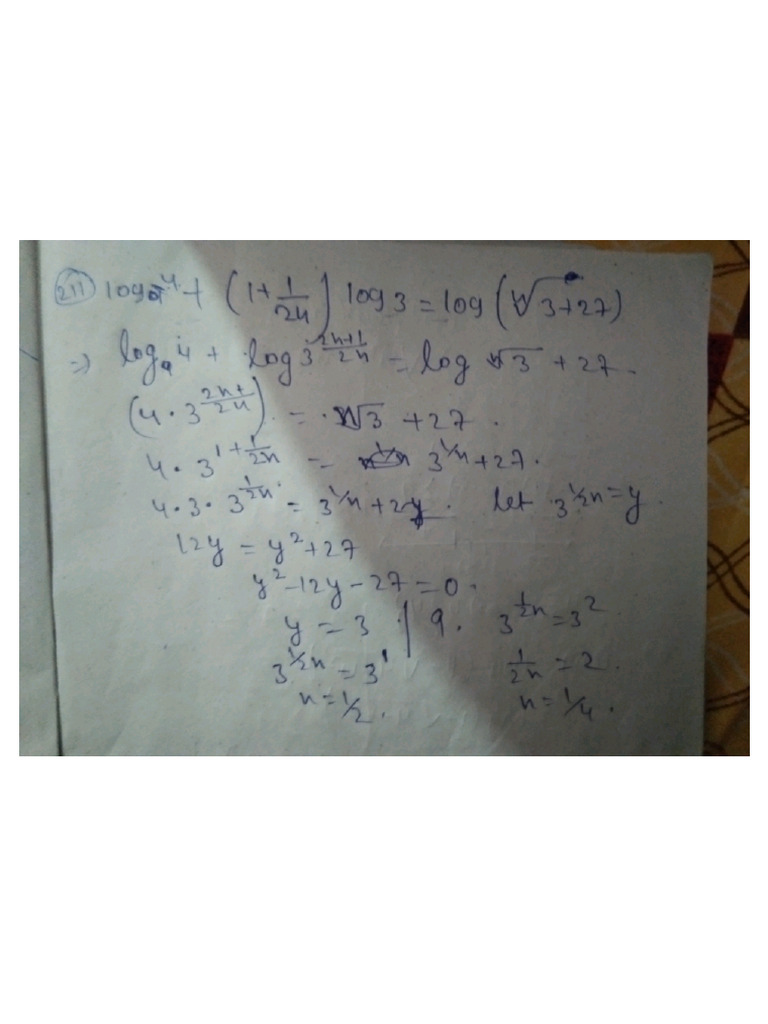 211 log 4 + (1+1/2n) log 3 = log (ⁿ√3+27)
⇒ log 4 + log 3^(2n+1/2n) = log ⁿ√3 + 27.
(4 · 3^(2n+/2n)) = · ⁿ√3 + 27 .
4 · 3^(1+1/2n) = 3^(1/n) + 27.
4 · 3 · 3^(1/2n) = 3^(1/n) + 27. let 3^(1/2n) = y.
12y = y² + 27
y² - 12y - 27 = 0.
y = 3 | 9. 3^(1/2n) = 3²
3^(1/2n) = 3¹ 1/2n = 2.
n = 1/2. n = 1/4.